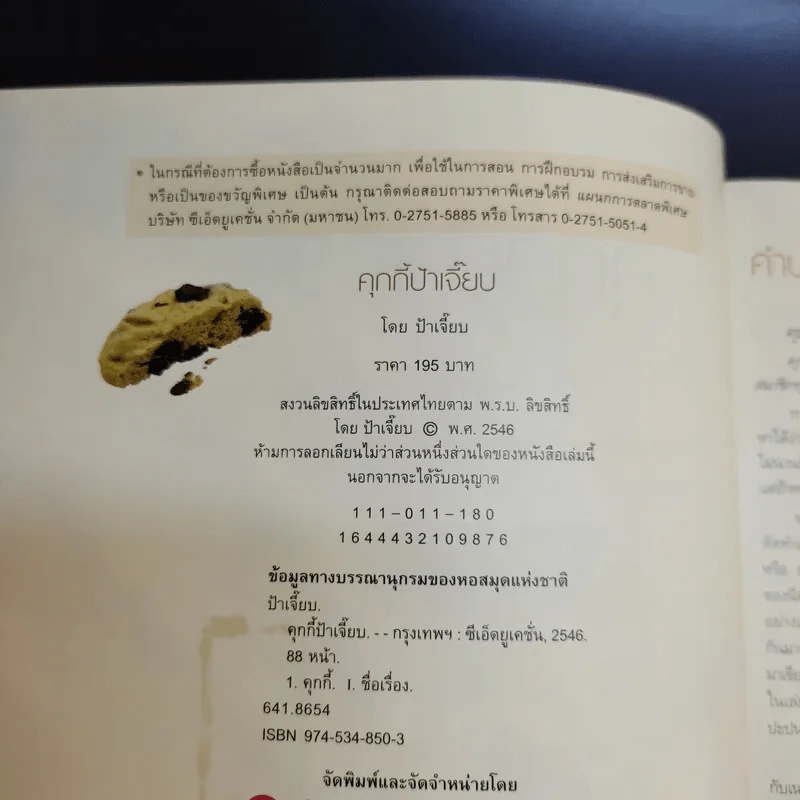 • ในกรณีที่ต้องการซื้อหนังสือเป็นจำนวนมาก เพื่อใช้ในการสอน การฝึกอบรม การส่งเสริมการขาย
หรือเป็นของขวัญพิเศษ เป็นต้น กรุณาติดต่อสอบถามราคาพิเศษได้ที่ แผนกการตลาดพิเศษ
บริษัท ซีเอ็ดยูเคชั่น จำกัด (มหาชน) โทร. 0-2751-5885 หรือ โทรสาร 0-2751-5051-4
คุกกี้ป้าเจี๊ยบ
โดย ป้าเจี๊ยบ
ราคา 195 บาท
สงวนลิขสิทธิ์ในประเทศไทยตาม พ.ร.บ. ลิขสิทธิ์
โดย ป้าเจี๊ยบ © พ.ศ. 2546
ห้ามการลอกเลียนไม่ว่าส่วนหนึ่งส่วนใดของหนังสือเล่มนี้
นอกจากจะได้รับอนุญาต
111-011-180
1644432109876
ข้อมูลทางบรรณานุกรมของหอสมุดแห่งชาติ
ป้าเจี๊ยบ.
คุกกี้ป้าเจี๊ยบ. -- กรุงเทพฯ : ซีเอ็ดยูเคชั่น, 2546.
88 หน้า.
1. คุกกี้. I. ชื่อเรื่อง.
641.8654
ISBN 974-534-850-3
จัดพิมพ์และจัดจำหน่ายโดย